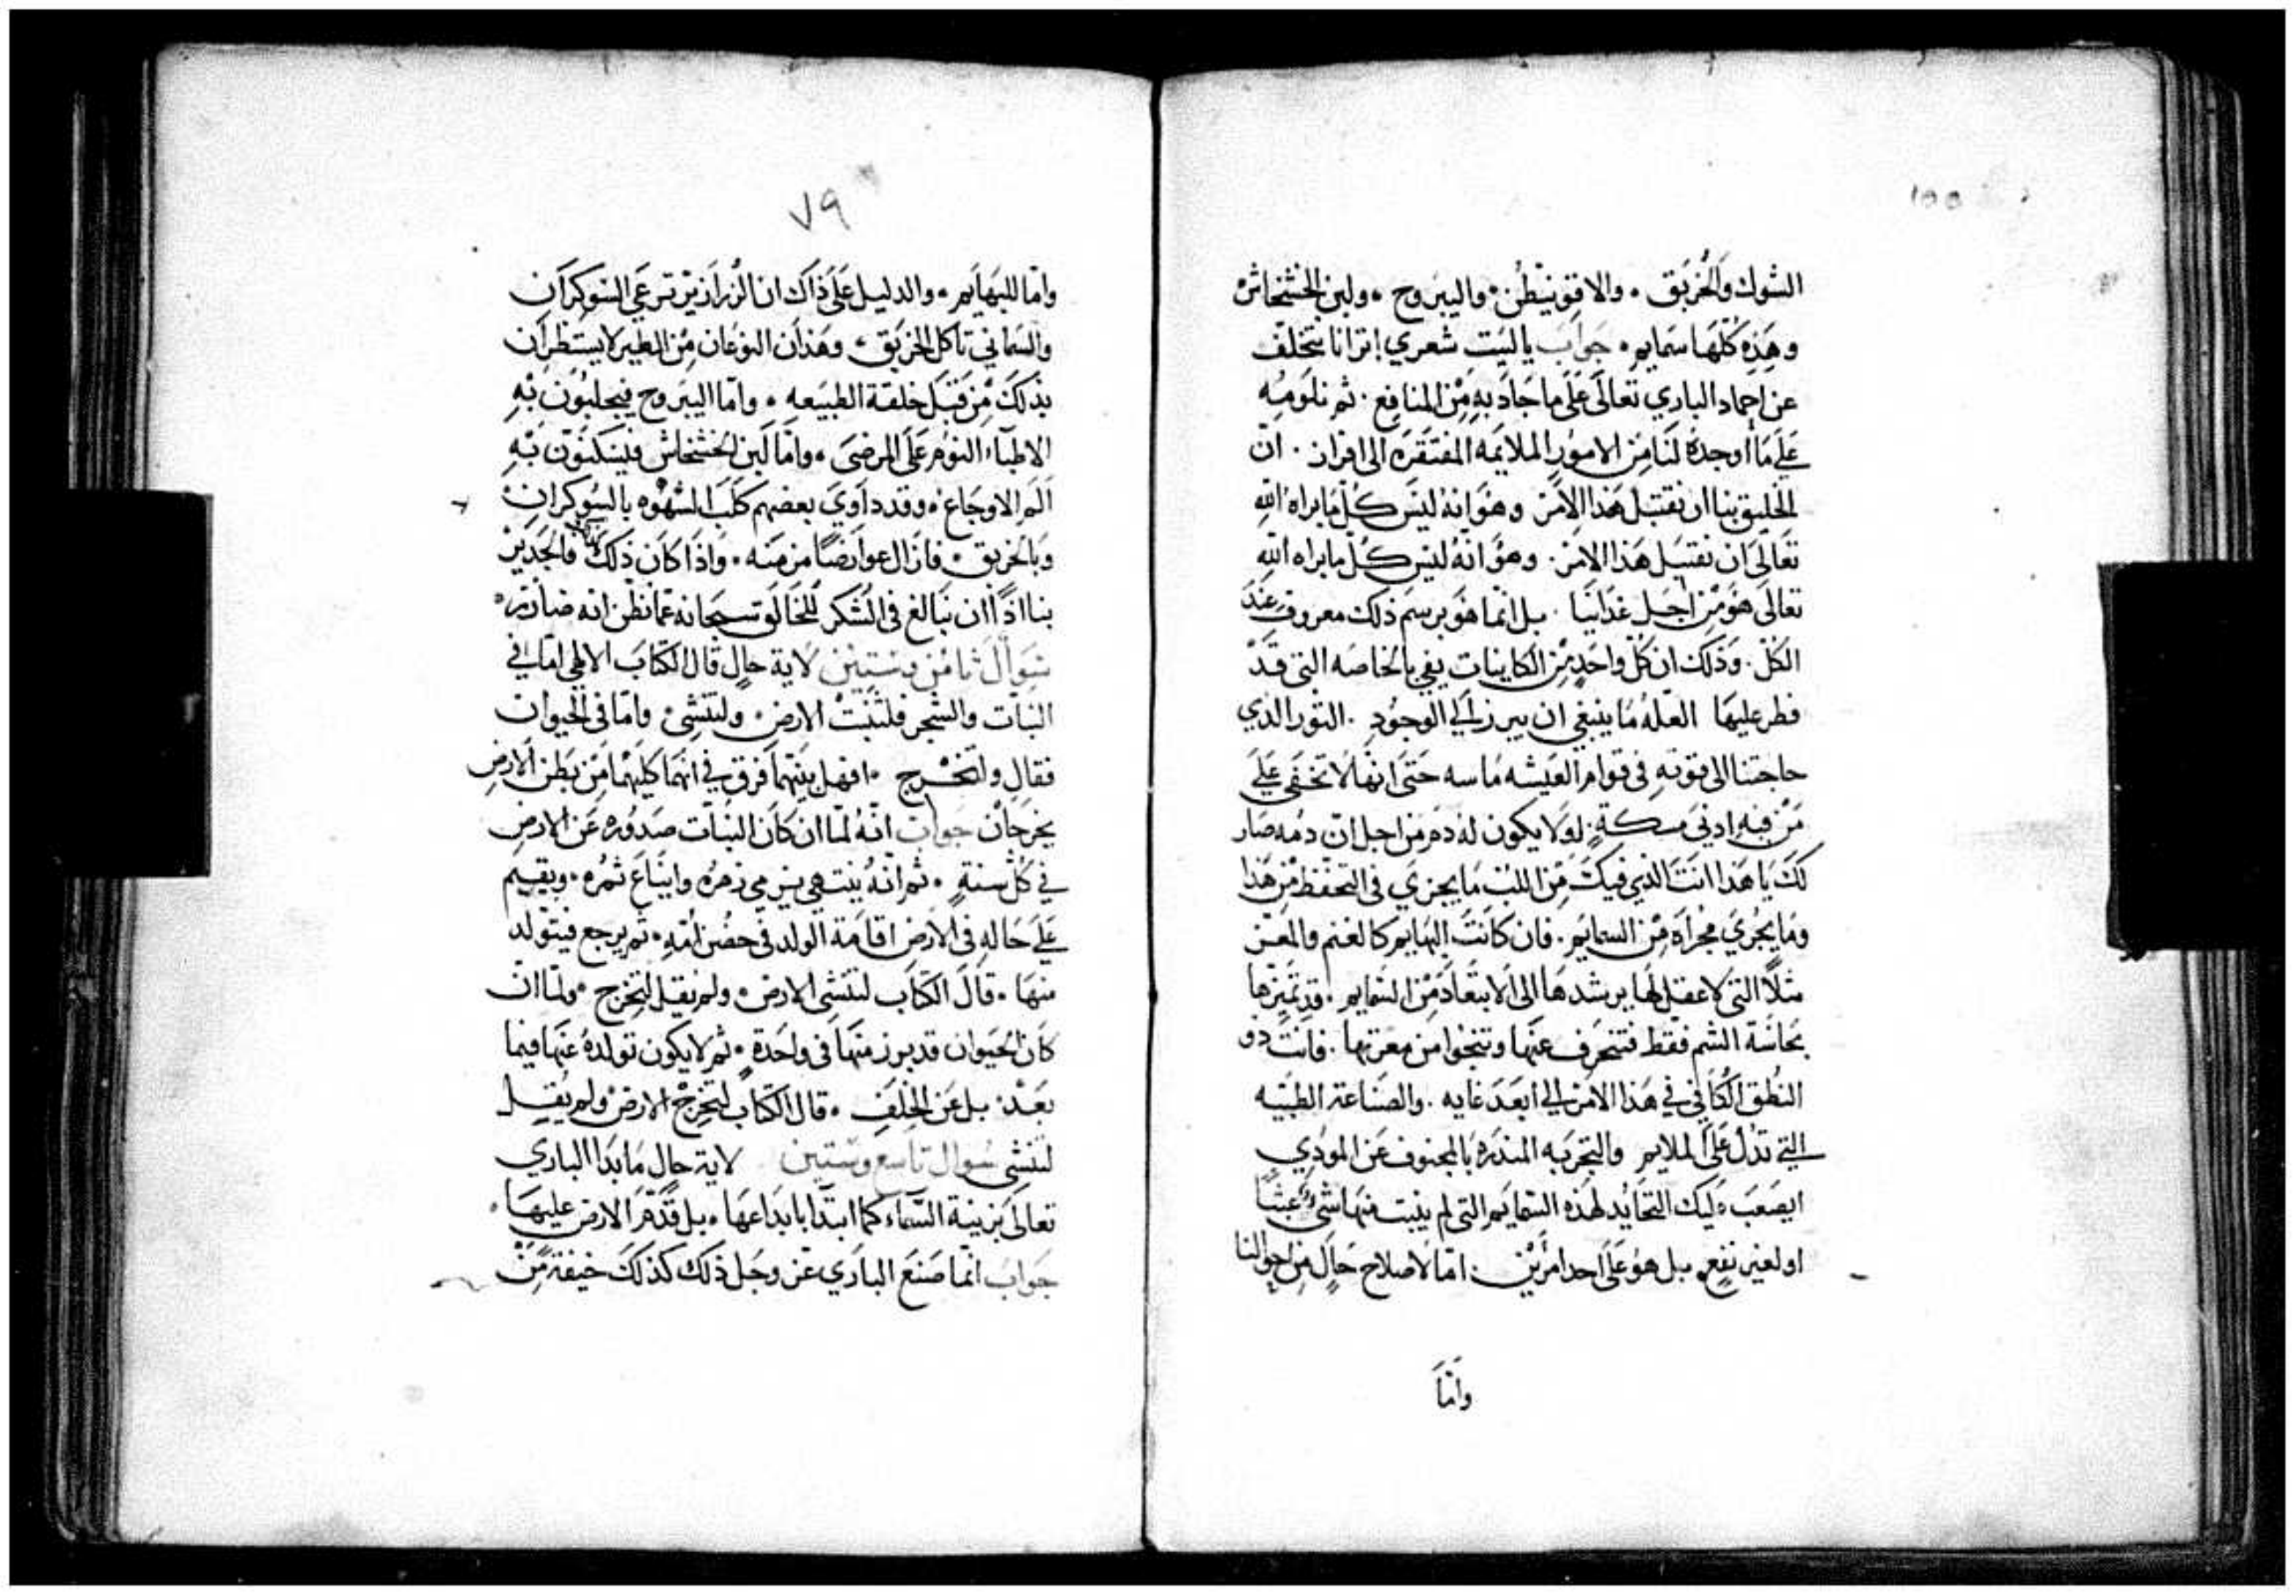 ١٥٥
الشوك والخُربَق . والاقونيطُن . واليبروح . ولبن الخشخاش
وهَذِه كُلّهَا سَمايم . جَوابَ ياليَت شعري إترانا نتخلّف
عن احماد الباري تعالَى عَلَى ما جَادَ بهِ مِنْ المنافِع . ثم نلومُه
عَلَى مَا أوجدهُ لنَا مِن الامورِ الملايمَه المفتقرَه الى افران . ان
الخليق بنا ان نقتبَل هَذا الامْرَ وهوَ انهُ ليسَ كُلّ مَا براه اللّه
تعَالىَ ان نقتبَل هَذا الامر . وهوَ انّهُ ليسَ كُلّ ما براه اللّه
تعالَى هوَ مِنْ اجَل غدانَيا . بل انما هوَ برسَم ذلك معروفٍ عندَ
الكلّ . وَذَلكَ ان كلّ واحدٍ مِنْ الكاينات يفي بالخاصَه التى قدْ
فطر عليهَا العلّهُ مَا ينبغي ان يبرز الي الوجُودِ . الثور الذي
حاجتنا الى قوتهِ فى قوام العَيشه مَاسه حَتىَ انهَا لاتخفَى عَلَى
مَنْ فيهِ ادنىَ مسكةٍ لولا يكون لهُ دم مَن اجل انّ دمه صَار
لكَ يَا هَذا انتَ الذي فيكَ مَن اللبْ مَا يجزيَ فى التحفّظ مِن هَذا
ومَا يَجُريَ مجُراه مِنْ السمايَم . فان كانَتَ البهَايم كالغنم والمعز
مثلاً التىَ لا عقلَ لهَا يرشدهَا الى الابتعَادَ مِن السَّمايم . قد تميزها
بحاسّة الشم فقط فتنحَرف عنَها وتنجُوا من معرتها . فانتَ ذو
النطق الكافي في هَذا الامر الى ابعَدَ غايه . والصَناعة الطبّيه
التي تدُل عَلَى الملايم والتجربَه المنذرَه بالمجنوف عَن المودِي
ايصَعبَ عَليك التحايد لهذه السّمايَم التى لم ينبت منهَا شىٌ عَبثًا
او لغير نفعٍ . بل هوَ عَلَى احد امرَيْن . امّا لاصلاح حَالٍ مِن احوالنا
وامّا
٧٩
وامّا للبهَايم . والدليل عَلىَ ذاكَ ان الزرازير ترعَي السَوكِرَان
والسَّماني تاكل الخربَق . وهَذان النوعَان مِنَ الطير لايستظران
بذلكَ مِنْ قبَل خلقة الطبيَعه . وامّا اليبَروح فيجلبُون بْهِ
الاطبآء النوْم عَلَى المرضىَ . وامّا لبَن الخشخاش فيسَكنّون بْهِ
المَ الاوجَاع . وقد داوَيَ بعضهم كلَبَ الشهوه بالسُوكرانْ
وَبالخربق . فازال عوارضًا من منه . وَاذَا كانَ ذلكَ فالجَديْر
بنا اذًا ان نَبالغَ فى الشكر للخَالق سبحَانه عمّا نظن انه ضاْر .
سُوَال ثامُن وستين لاية حالٍ قال الكتابَ الالهي امّا في
النبَات والشجر فلتنبَتْ الارض . ولتنشي . وامّا فى الحيوان
فقال ولتخرج . افهل بينَهما فَرق في انهما كليهما مَن بَطن الارضِ
يخرجان جَوابَ انّهُ لمّا ان كَانَ النبَات صَدُوره عَن الارضِ
في كُل سَنةٍ . ثم انهُ ينتهىَ برَمي زهرُه وايناعَ ثمُره . ويقيم
عَلَى حَالهِ فى الارض اقامَة الولد فى حضُن امّهِ . ثم يرجع فيتولد
منهَا . قَالَ الكتاب لتنشي الارض . ولم يقل لتخرج . ولمّا انّ
كَان الحيَوان قد برز منهَا فى واحَدةٍ . ثم لايكون تولدهُ عَنهَا فيما
بعَدْ . بل عَن الخلَفِ . قال الكتَاب لتخرجْ الارض ولم يقل
لتنشي سُوال تاسع وستين لاية حالٍ مَا بدا الباري
تعالىَ بزينة السَّماء كما ابتدا بابداعَها . بل قدّم الارض عليهَا .
جوابَ انّما صَنعَ البارَي عَز وجَل ذلك كذلكَ خيفةً مِنْ